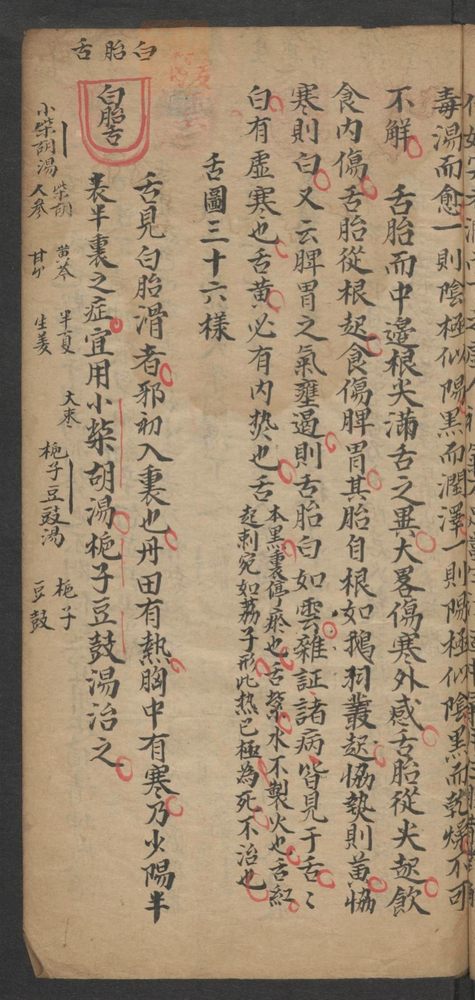 毒湯而愈一則陰極似陽黑而潤澤一則陽極似陰黑而乾燥不可
不觧　舌胎而中邊根尖滿舌之異大畧傷寒外感舌胎從尖起飲
食内傷舌胎從根起食傷脾胃其胎自根如鵝羽叢起恊熱則黄恊
寒則白又云脾胃之氣壅遏則舌胎白如雲雜証諸病皆見于舌〻
白有虛寒也舌黄必有内熱也舌
本黑裏停瘀也舌縈水不製火也舌紅
起刺宛如荔子形此热已極為死不治也
舌圖三十六樣
舌見白胎滑者邪初入裏也丹田有熱胸中有寒乃少陽半
表半裏之症宜用小柴胡湯梔子豆鼓湯治之
白胎舌
白胎舌
小柴胡湯
柴胡
人參
黄芩
甘艸
半夏
生姜
大朿
梔子豆豉湯
梔子
豆鼓